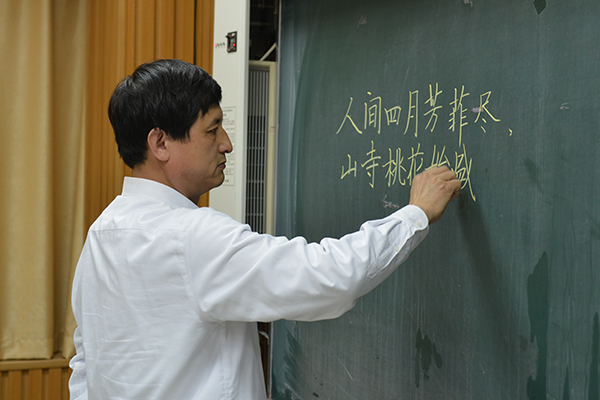 人间四月芳菲尽，
山寺桃花始盛